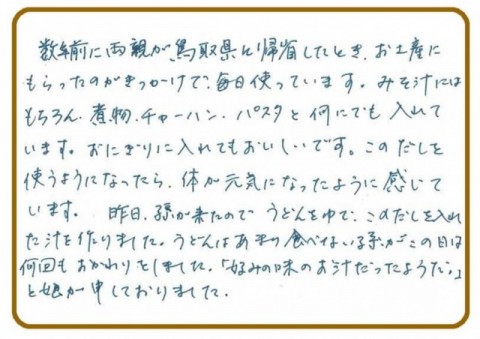 数年前に両親が鳥取県に帰省したとき、お土産に
もらったのがきっかけで、毎日使っています。みそ汁には
もちろん、煮物、チャーハン、パスタと何にでも入れて
います。おにぎりに入れてもおいしいです。このだしを
使うようになったら、体が元気になったように感じて
います。 昨日、孫が来たので うどんをゆで、このだしを入れ
た汁を作りました。うどんはあまり食べない孫がこの日は
何回もおかわりをしました。「好みの味のお汁だったようだ。」
と娘が申しておりました。